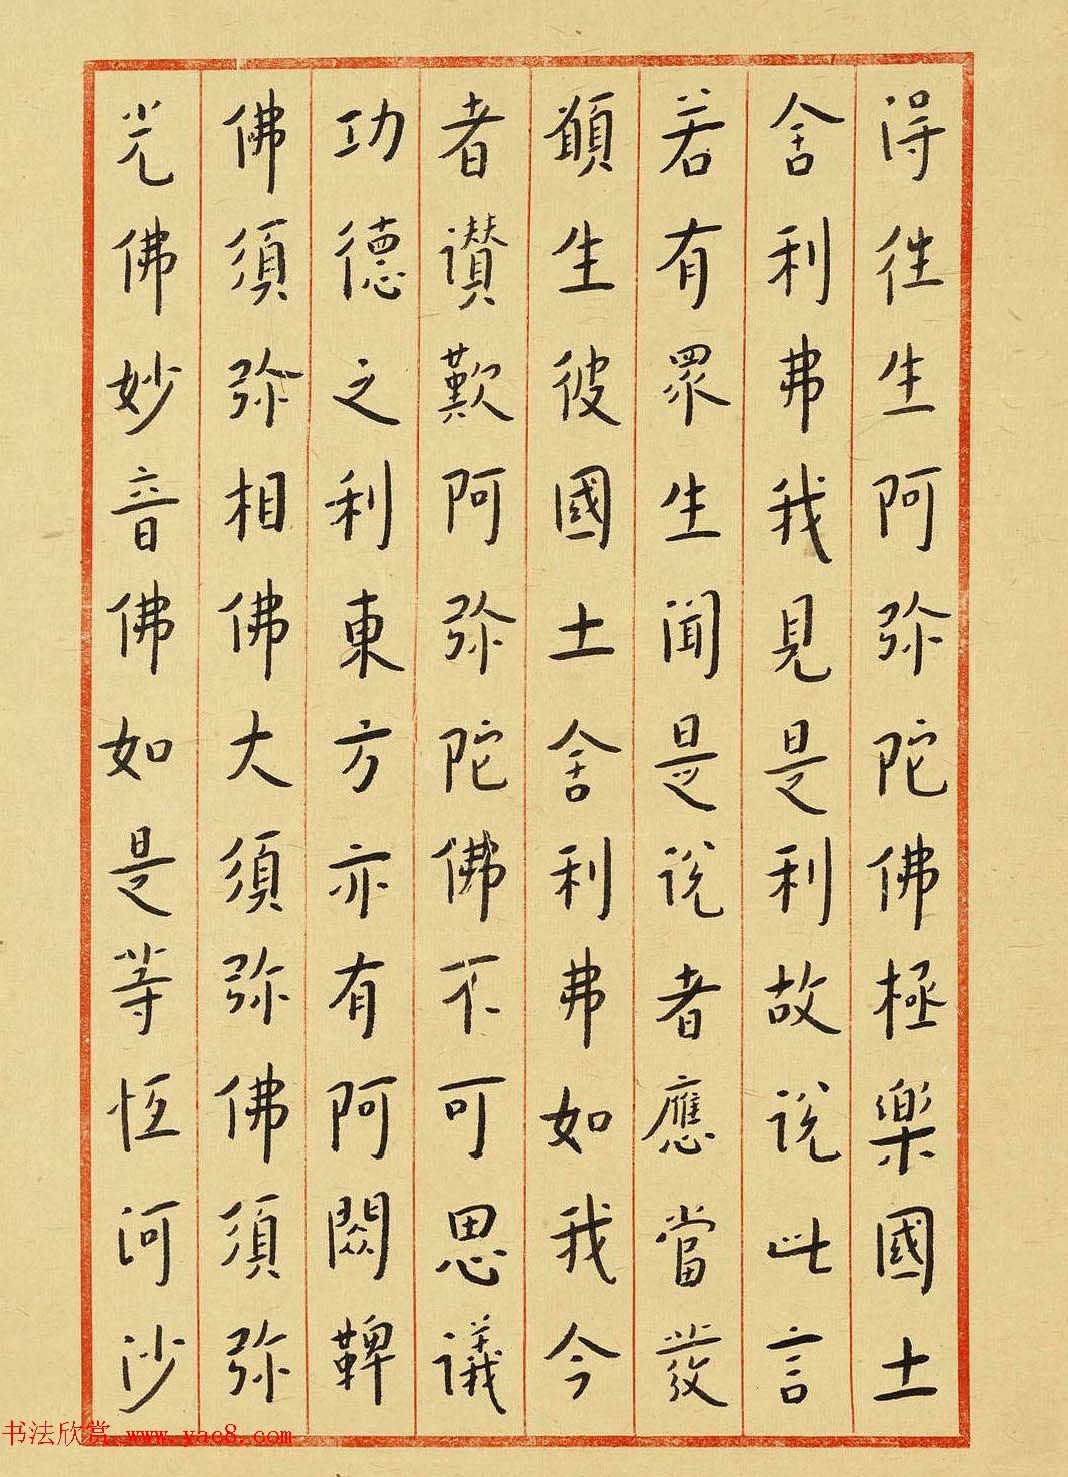 得往生阿弥陀佛極樂國土
舍利弗我見是利故說此言
若有眾生聞是說者應當發
願生彼國土舍利弗如我今
者讚歎阿弥陀佛不可思議
功德之利東方亦有阿閦鞞
佛須弥相佛大須弥佛須弥
光佛妙音佛如是等恆河沙
书法欣赏 www.yac8.com